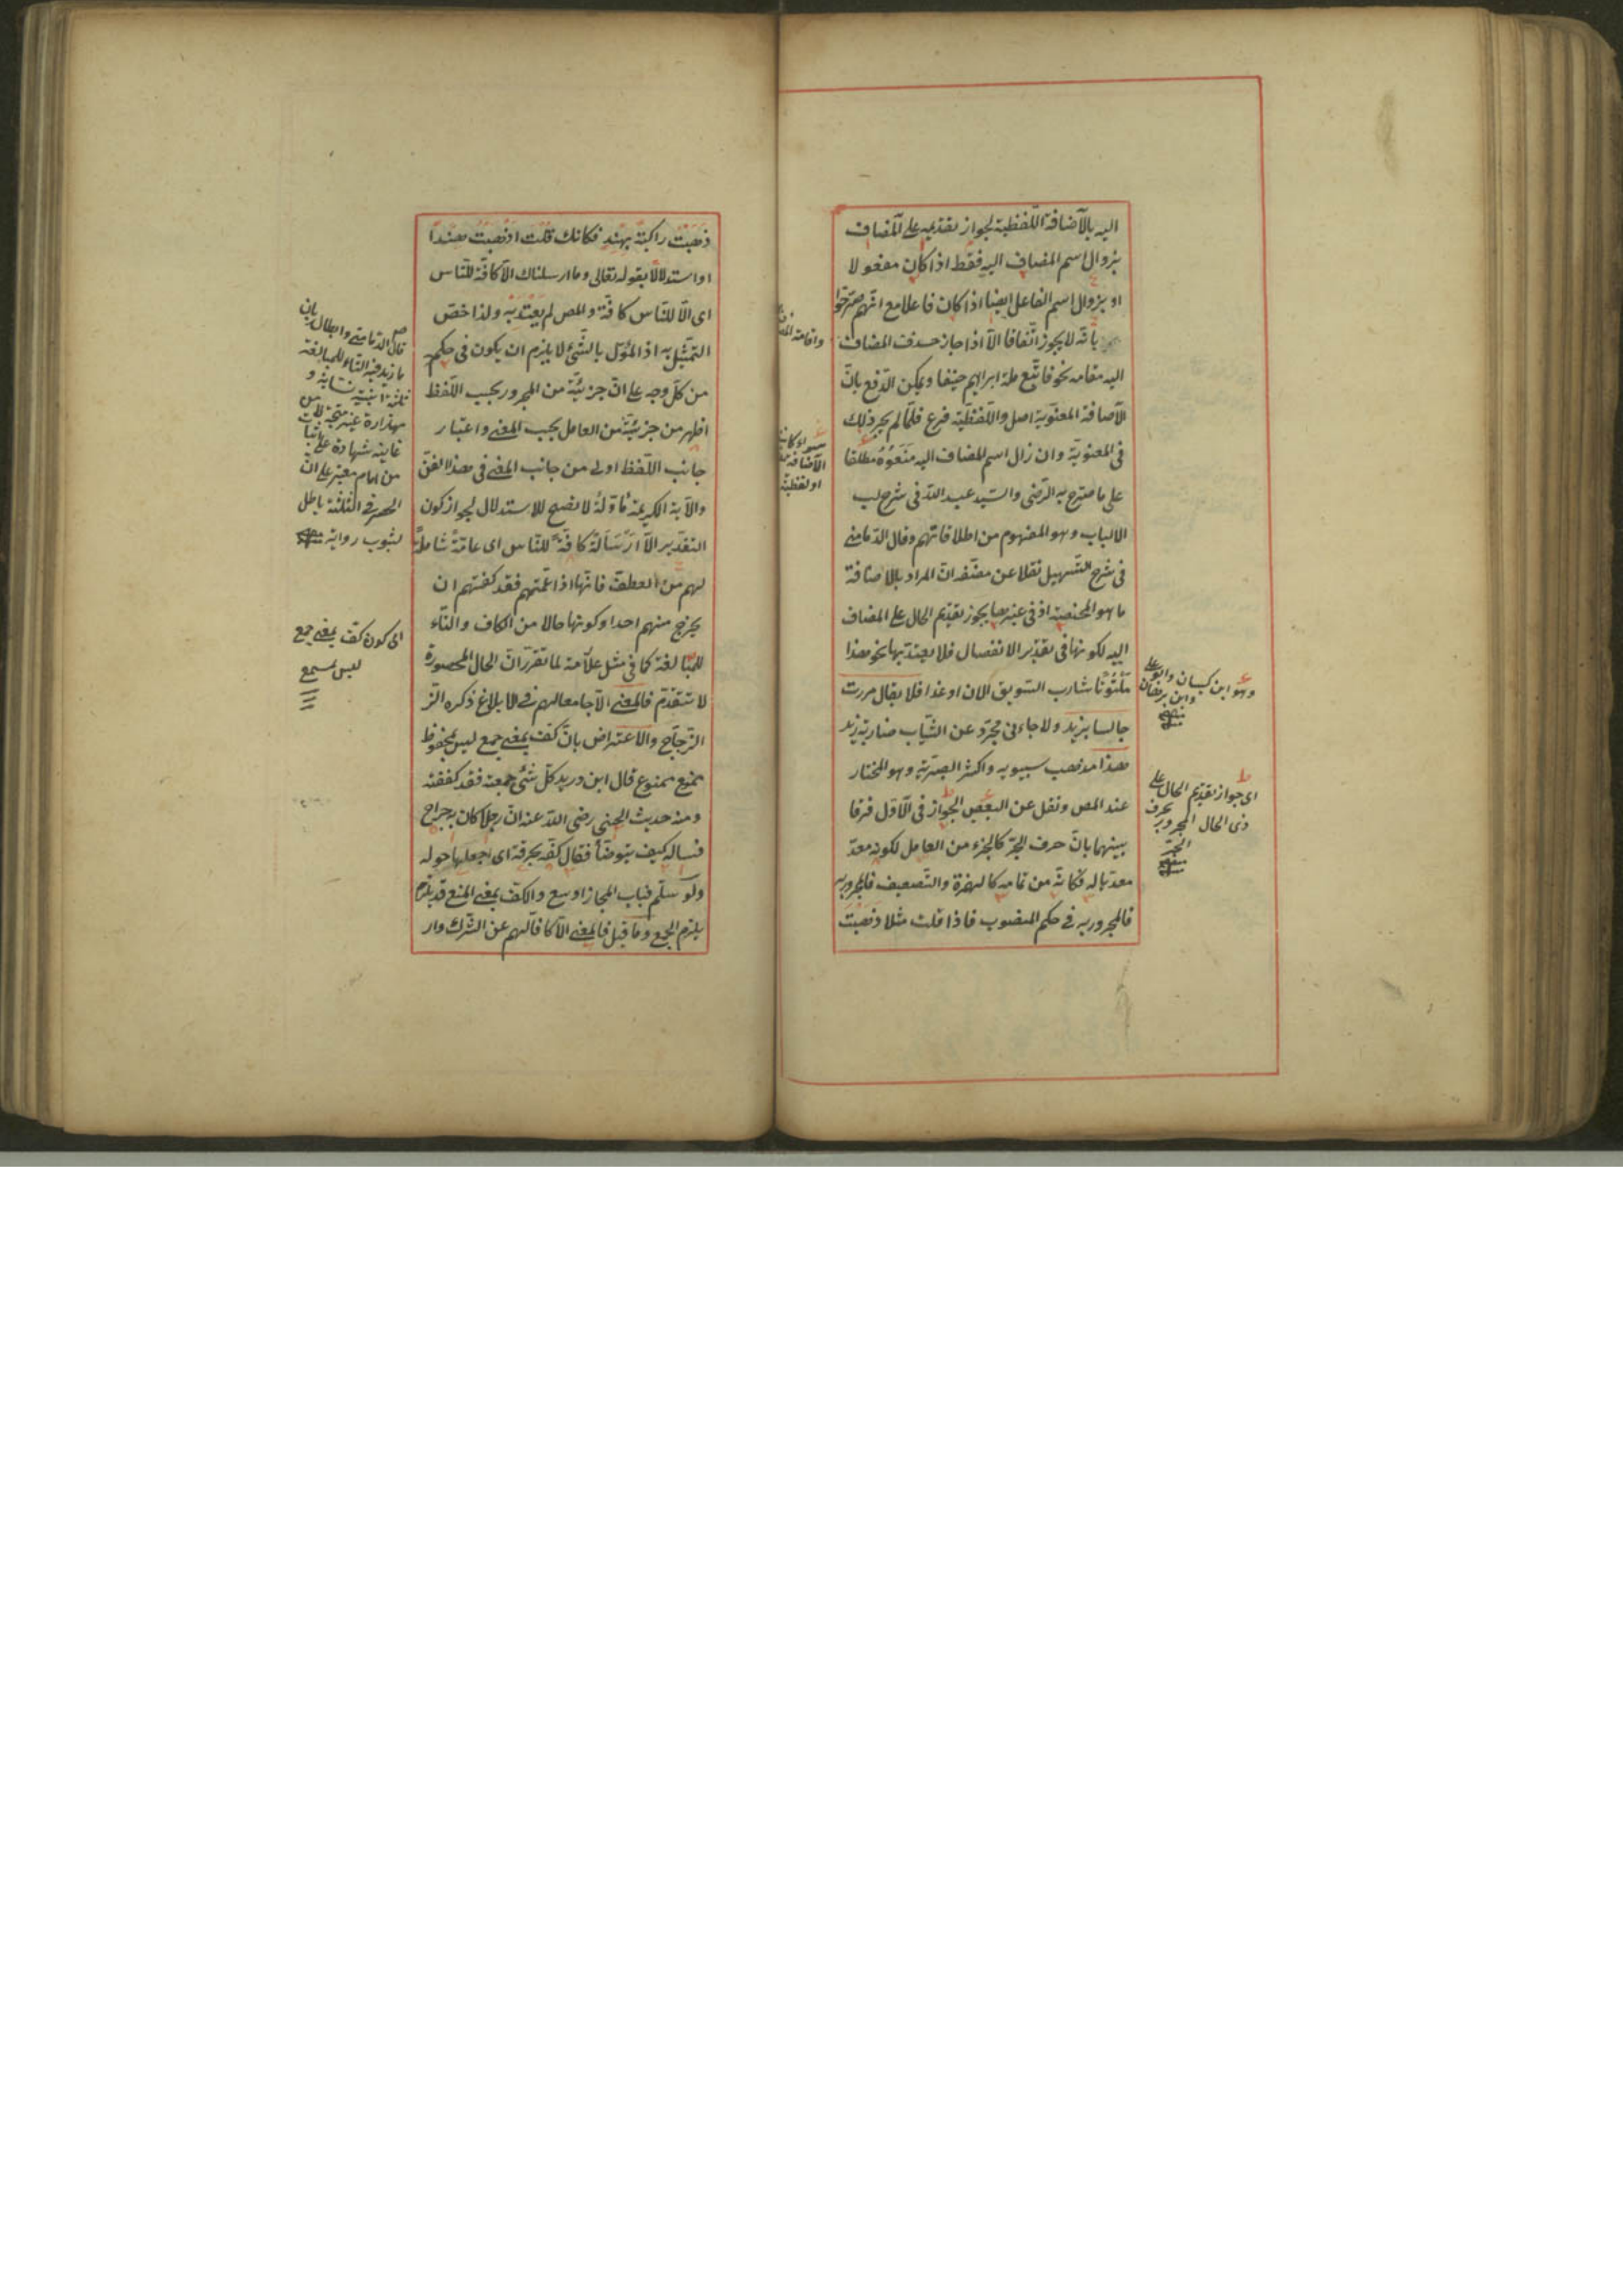 اليه بالاضافة اللفظية لجواز تقديمه على المضاف
بزوال اسم المضاف اليه فقط اذا كان مفعولا
او بزوال اسم الفاعل ايضا اذا كان فاعلا مع انهم صرحوا
بانه لا يجوز اتفاقا الا اذا جاز حذف المضاف
اليه مقامه نحو فاتبع ملة ابراهيم حنيفا ويمكن الدفع بان
الاضافة المعنوية اصل واللفظية فرع فلما لم يجز ذلك
فى المعنوية وان زال اسم المضاف اليه منعوه مطلقا
على ما صرح به الرضى والسيد عبد الله فى شرح لب
الالباب وهو المفهوم من اطلاقاتهم وقال الدمامينى
فى شرح التسهيل نقلا عن مصنفه ان المراد بالاضافة
ما هو المحضة اذ فى غيرها يجوز تقديم الحال على المضاف
اليه لكونها فى تقدير الانفصال فلا يعتد بها نحو هذا
ملتوتا شارب السويق الان او غدا فلا يقال مررت
جالسا بزيد ولا جاءنى مجرد عن الثياب ضاربة زيد
هذا مذهب سيبويه واكثر البصرية وهو المختار
عند المص ونقل عن البعض الجواز فى الاول فرقا
بينهما بان حرف الجر كالجزء من العامل لكونه معد
معديا له فكانه من تمامه كالهمزة والتضعيف فالمجرور به
فالمجرور به فى حكم المنصوب فاذا قلت مثلا ذهبت
سواء كانت
الاضافة
او لفظية
وهو ابن كيسان وابو على
وابن برهان
منه
اى جواز تقديم الحال على
ذى الحال المجرور بحرف
الجر
منه
ذهبت راكبة بهند فكانك قلت اذهبت هندا
او استدلالا بقوله تعالى وما ارسلناك الا كافة للناس
اى الا للناس كافة والمص لم يعتد به ولذا خص
التمثيل به اذ المؤل بالشئ لا يلزم ان يكون فى حكمه
من كل وجه على ان جزئية من المجرور بحسب اللفظ
اظهر من جزئية من العامل بحسب المعنى واعتبار
جانب اللفظ اولى من جانب المعنى فى هذا الفن
والآية الكريمة مأولة لا تصح للاستدلال لجواز كون
التقدير الا ارسالة كافة للناس اى عامة شاملة
لهم من العطف فانها اذا عمتهم فقد كفتهم ان
يخرج منهم احد او كونها حالا من الكاف والتاء
للمبالغة كما فى مثل علامة لما تقرر ان الحال المحصورة
لا تتقدم فالمعنى الا جامعا لهم فى الابلاغ ذكره الز
الزجاج والاعتراض بان كف بمعنى جمع ليس بمحفوظ
ممنوع قال ابن دريد كل شئ جمعته فقد كففته
ومنه حديث رضى الله عنه ان رجلا كان به جراح
فساله كيف يتوضأ فقال كفه بخرقة اى اجعلها حوله
ولو سلم فباب المجاز اوسع والكف بمعنى المنع قد يلزم
يلزم الجمع وما قيل فالمعنى الا كافا لهم عن الشرك وار
قال الدمامينى وابطال بان
ما زيد فيه التاء للمبالغة
ثلثة ابنية نسابة و
مهذارة
غاينه شهادة على اثبا
من امام معتبر على ان
الحصر فى الثلثة باطل
لثبوت رواية منه
اى كون كف بمعنى جمع
ليس بمسموع